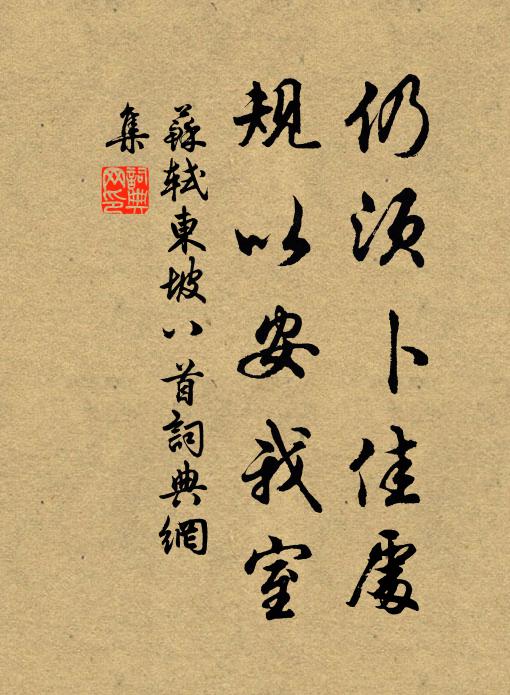 仍須卜佳處
規以安我室
蘇軾東坡八首詞典網
集
詞典網印